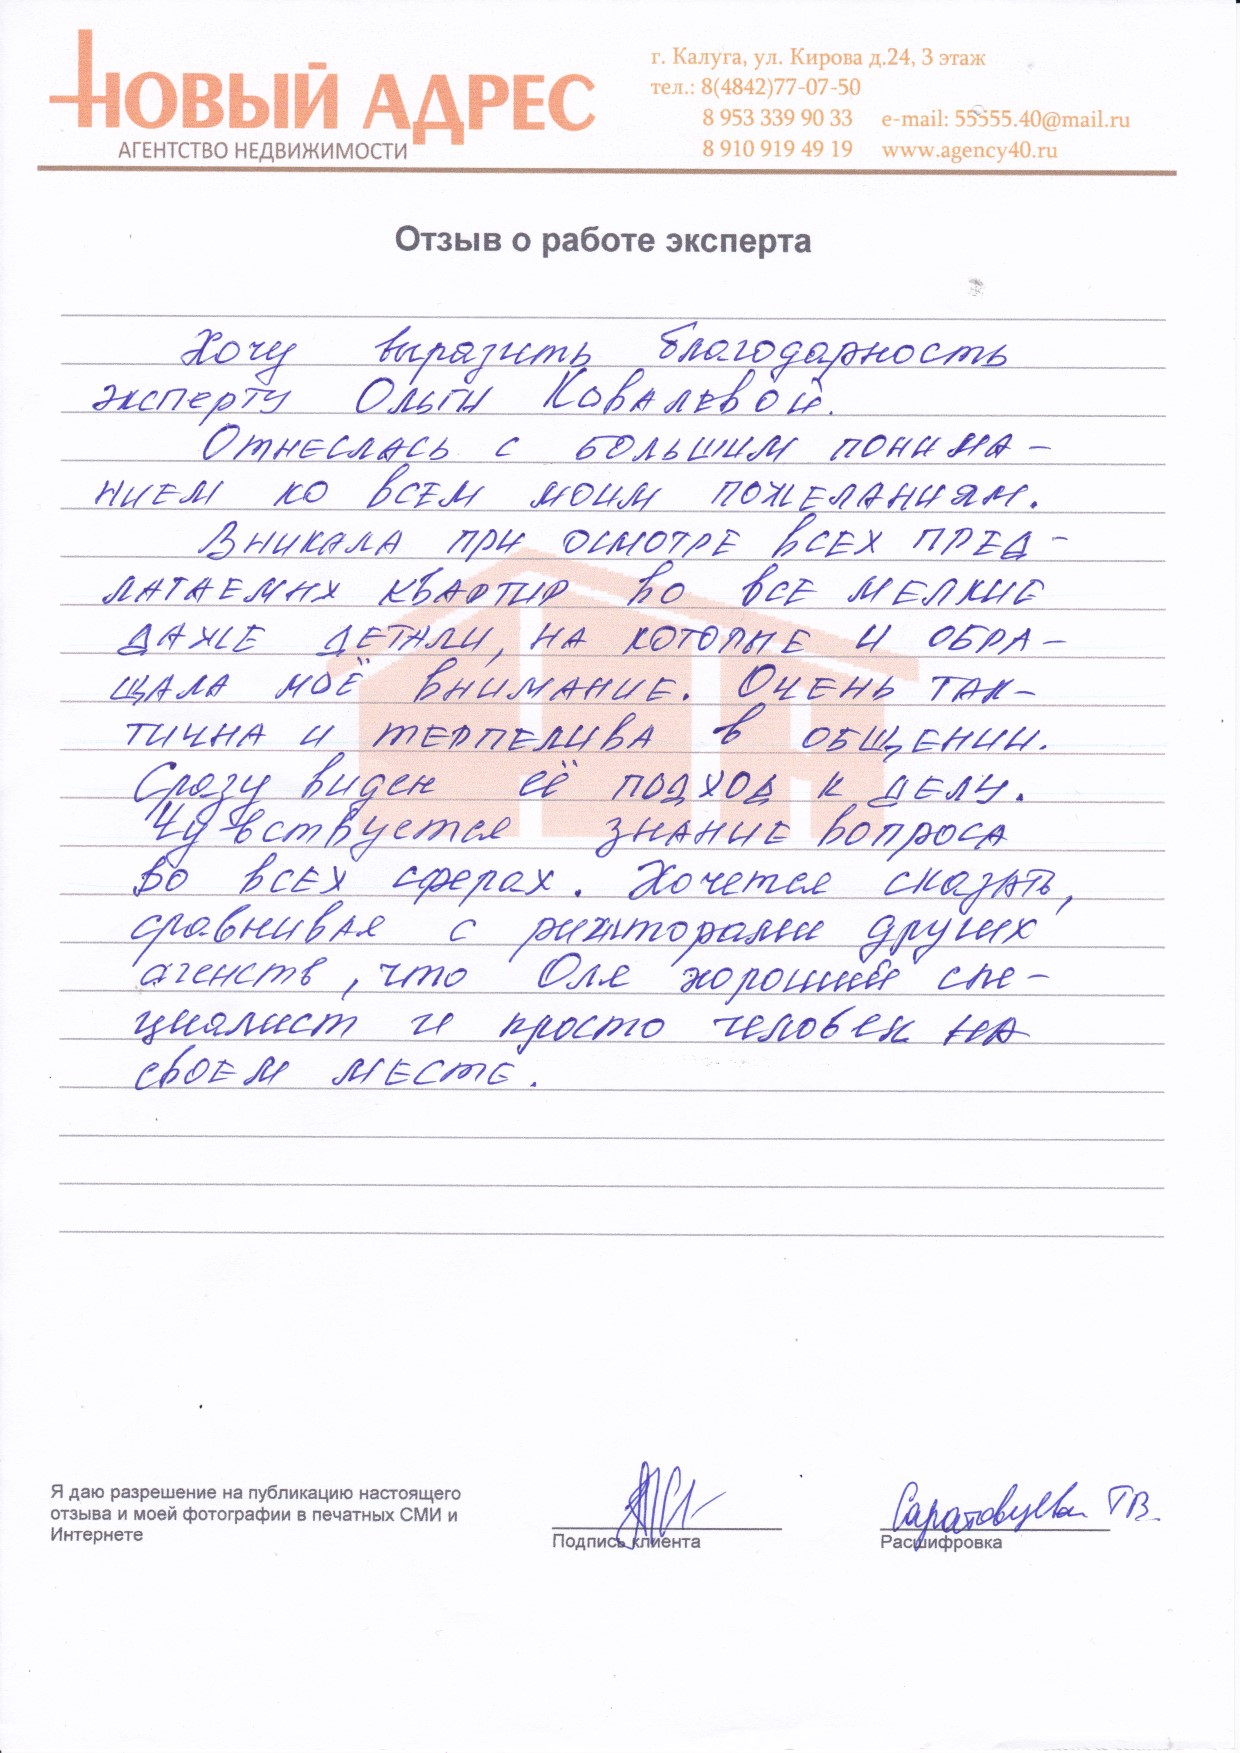 НОВЫЙ АДРЕС
АГЕНТСТВО НЕДВИЖИМОСТИ
г. Калуга, ул. Кирова д.24, 3 этаж
тел.: 8(4842)77-07-50
8 953 339 90 33 e-mail: 55555.40@mail.ru
8 910 919 49 19 www.agency40.ru
Отзыв о работе эксперта
Хочу выразить благодарность
эксперту Ольги Ковалевой.
Отнеслась с большим понима-
нием ко всем моим пожеланиям.
Вникала при осмотре всех пред-
лагаемых квартир во все мелкие
даже детали, на которые и обра-
щала моё внимание. Очень так-
тична и терпелива в общении.
Сразу виден её подход к делу.
Чувствуется знание вопроса
во всех сферах. Хочется сказать,
сравнивая с риэлторами других
агенств, что Оля хороший спе-
циалист и просто человек на
своем месте.
Я даю разрешение на публикацию настоящего
отзыва и моей фотографии в печатных СМИ и
Интернете
Подпись клиента
Саратовцева ТВ
Расшифровка